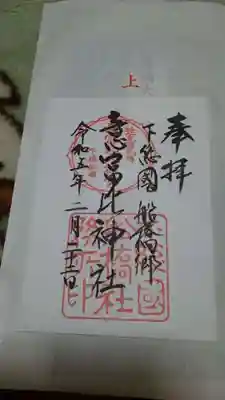 上
奉拝
下総國船橋郷
意富比神社
令和五年二月二十三日